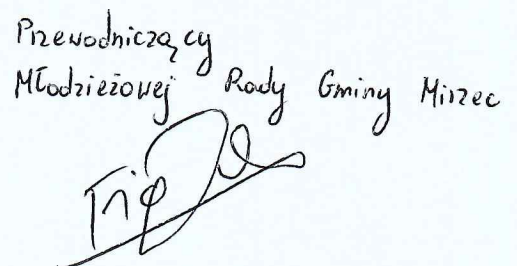 Przewodniczący
Młodzieżowej Rady Gminy Mirzec